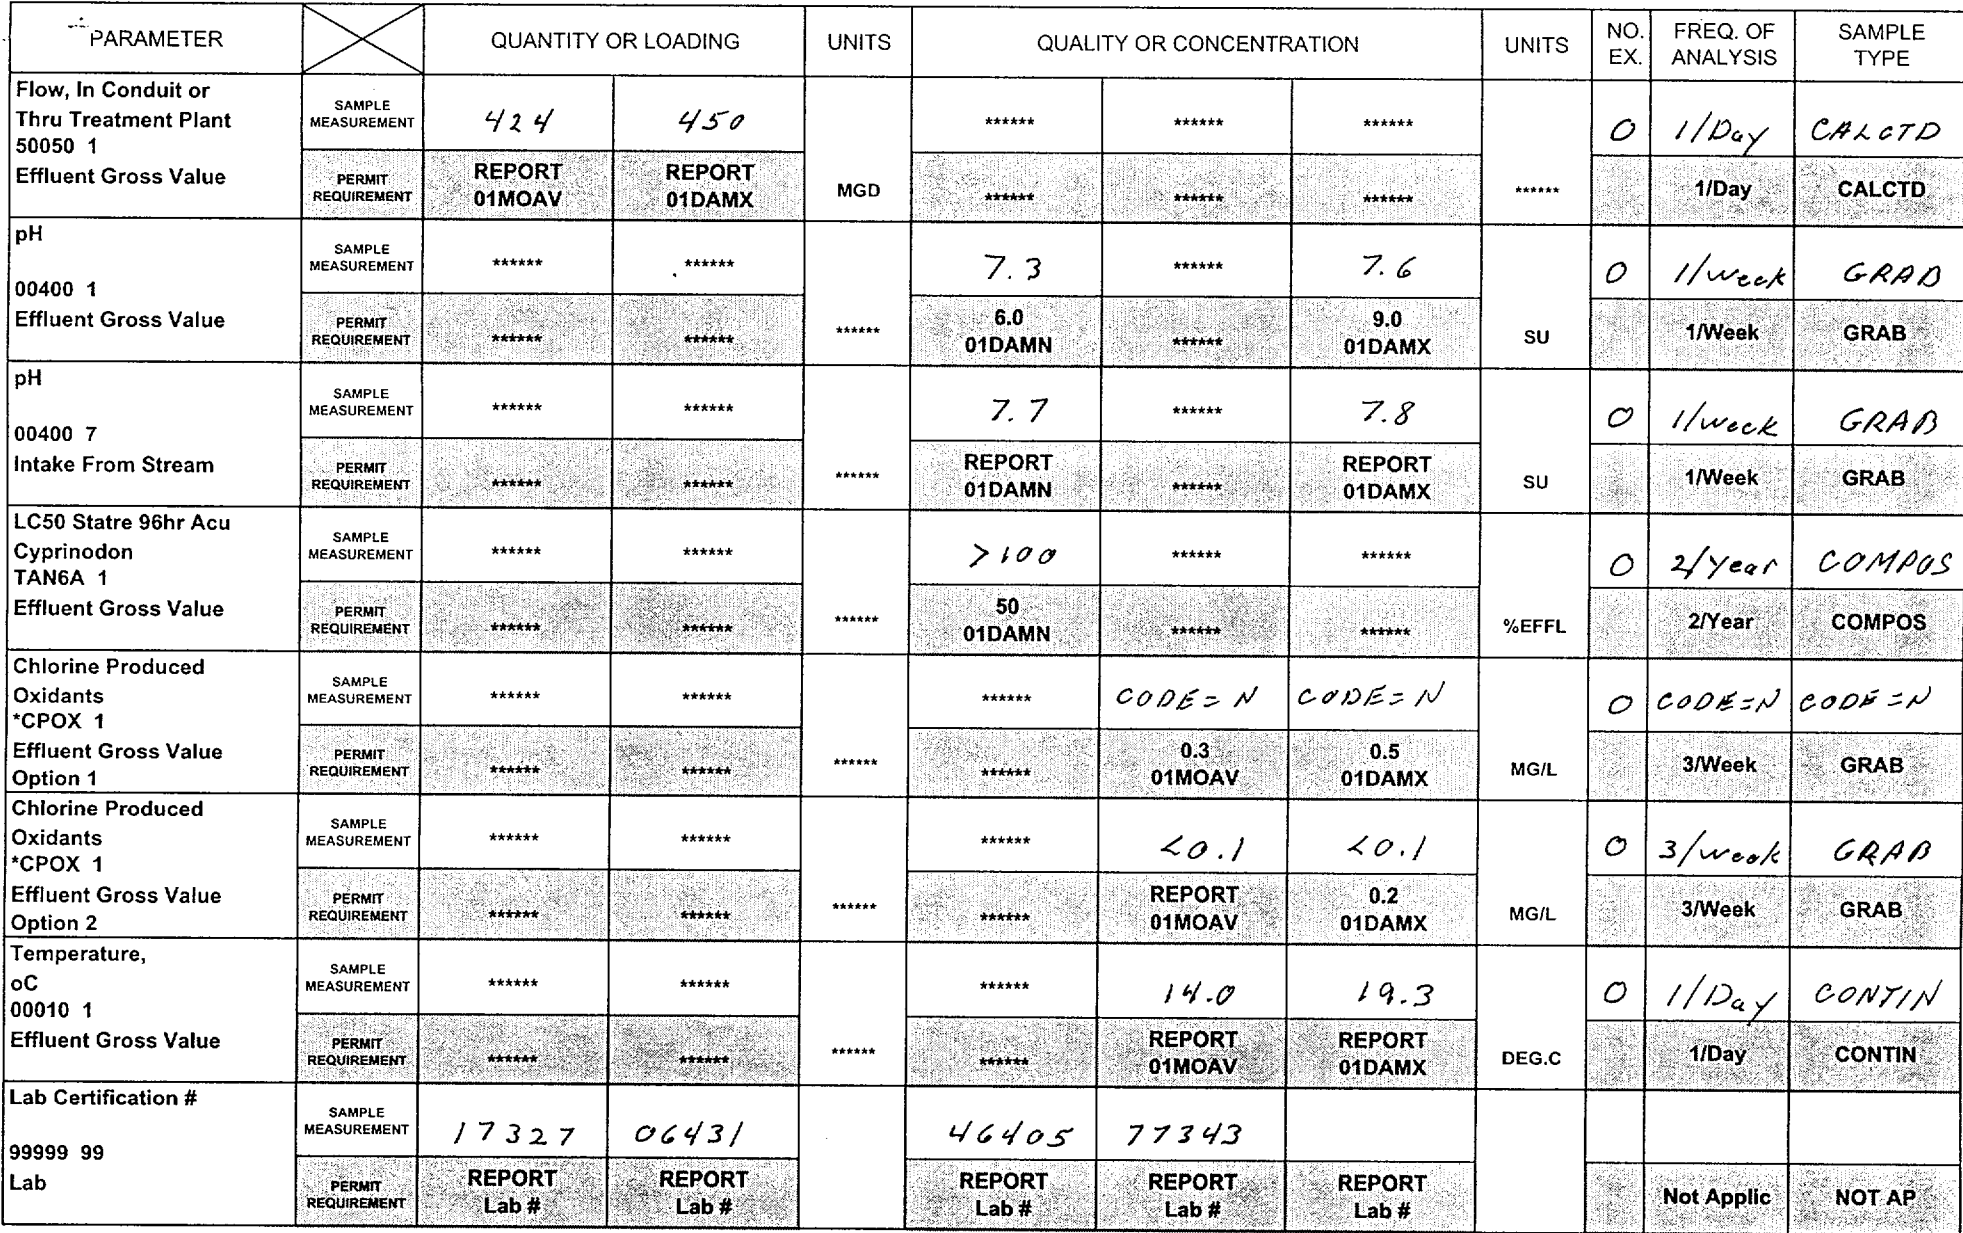 PARAMETER QUANTITY OR LOADING UNITS QUALITY OR CONCENTRATION UNITS NO. EX. FREQ. OF ANALYSIS SAMPLE TYPE
Flow, In Conduit or
Thru Treatment Plant
50050 1
Effluent Gross Value
SAMPLE MEASUREMENT 424 450 ****** ****** ****** 0 1/Day CALCTD
PERMIT REQUIREMENT REPORT 01MOAV REPORT 01DAMX MGD ****** ****** ****** ****** 1/Day CALCTD
pH
00400 1
Effluent Gross Value
SAMPLE MEASUREMENT ****** ****** 7.3 ****** 7.6 0 1/week GRAB
PERMIT REQUIREMENT ****** ****** ****** 6.0 01DAMN ****** 9.0 01DAMX SU 1/Week GRAB
pH
00400 7
Intake From Stream
SAMPLE MEASUREMENT ****** ****** 7.7 ****** 7.8 0 1/week GRAB
PERMIT REQUIREMENT ****** ****** ****** REPORT 01DAMN ****** REPORT 01DAMX SU 1/Week GRAB
LC50 Statre 96hr Acu
Cyprinodon
TAN6A 1
Effluent Gross Value
SAMPLE MEASUREMENT ****** ****** >100 ****** ****** 0 2/Year COMPOS
PERMIT REQUIREMENT ****** ****** ****** 50 01DAMN ****** ****** %EFFL 2/Year COMPOS
Chlorine Produced
Oxidants
*CPOX 1
Effluent Gross Value
Option 1
SAMPLE MEASUREMENT ****** ****** ****** CODE=N CODE=N 0 CODE=N CODE=N
PERMIT REQUIREMENT ****** ****** ****** ****** 0.3 01MOAV 0.5 01DAMX MG/L 3/Week GRAB
Chlorine Produced
Oxidants
*CPOX 1
Effluent Gross Value
Option 2
SAMPLE MEASUREMENT ****** ****** ****** <0.1 <0.1 0 3/week GRAB
PERMIT REQUIREMENT ****** ****** ****** ****** REPORT 01MOAV 0.2 01DAMX MG/L 3/Week GRAB
Temperature,
oC
00010 1
Effluent Gross Value
SAMPLE MEASUREMENT ****** ****** ****** 14.0 19.3 0 1/Day CONTIN
PERMIT REQUIREMENT ****** ****** ****** ****** REPORT 01MOAV REPORT 01DAMX DEG.C 1/Day CONTIN
Lab Certification #
99999 99
Lab
SAMPLE MEASUREMENT 17327 06431 46405 77343
PERMIT REQUIREMENT REPORT Lab # REPORT Lab # REPORT Lab # REPORT Lab # REPORT Lab # Not Applic NOT AP